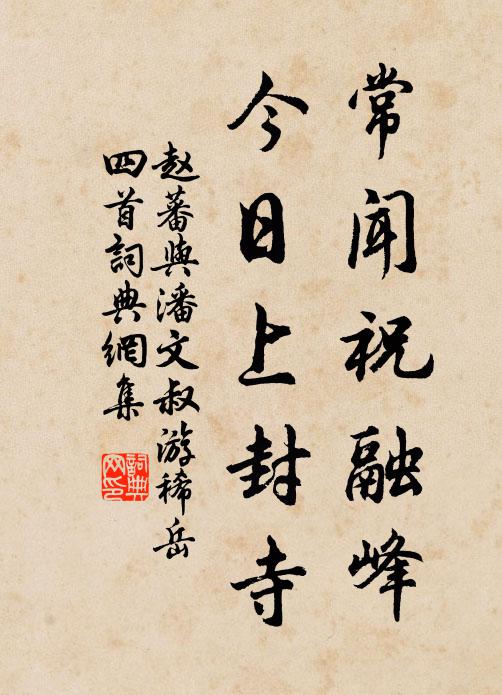 常闻祝融峰
今日上封寺
赵蕃與潘文叔游稀岳
四首詞典網集
詞典网印